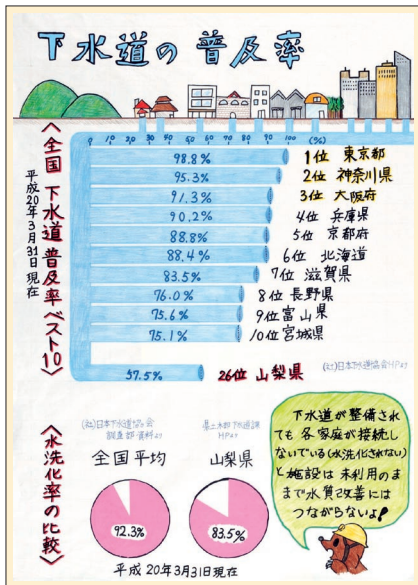 下水道の普及率
〈全国 下水道普及率ベスト10〉
平成20年3月31日現在
0 10 20 30 40 50 60 70 80 90 100 (%)
98.8% 1位 東京都
95.3% 2位 神奈川県
91.3% 3位 大阪府
90.2% 4位 兵庫県
88.8% 5位 京都府
88.4% 6位 北海道
83.5% 7位 滋賀県
76.0% 8位 長野県
75.6% 9位 富山県
75.1% 10位 宮城県
57.5% 26位 山梨県
(社)日本下水道協会HPより
〈水洗化率の比較〉
(社)日本下水道協会
調査部・資料より
全国平均
92.3%
県土木部下水道課
HPより
山梨県
83.5%
平成 20年3月31日現在
下水道が整備され
ても各家庭が接続し
ないでいる(水洗化されない)
と施設は未利用のま
まで水質改善には
つながらないよ!